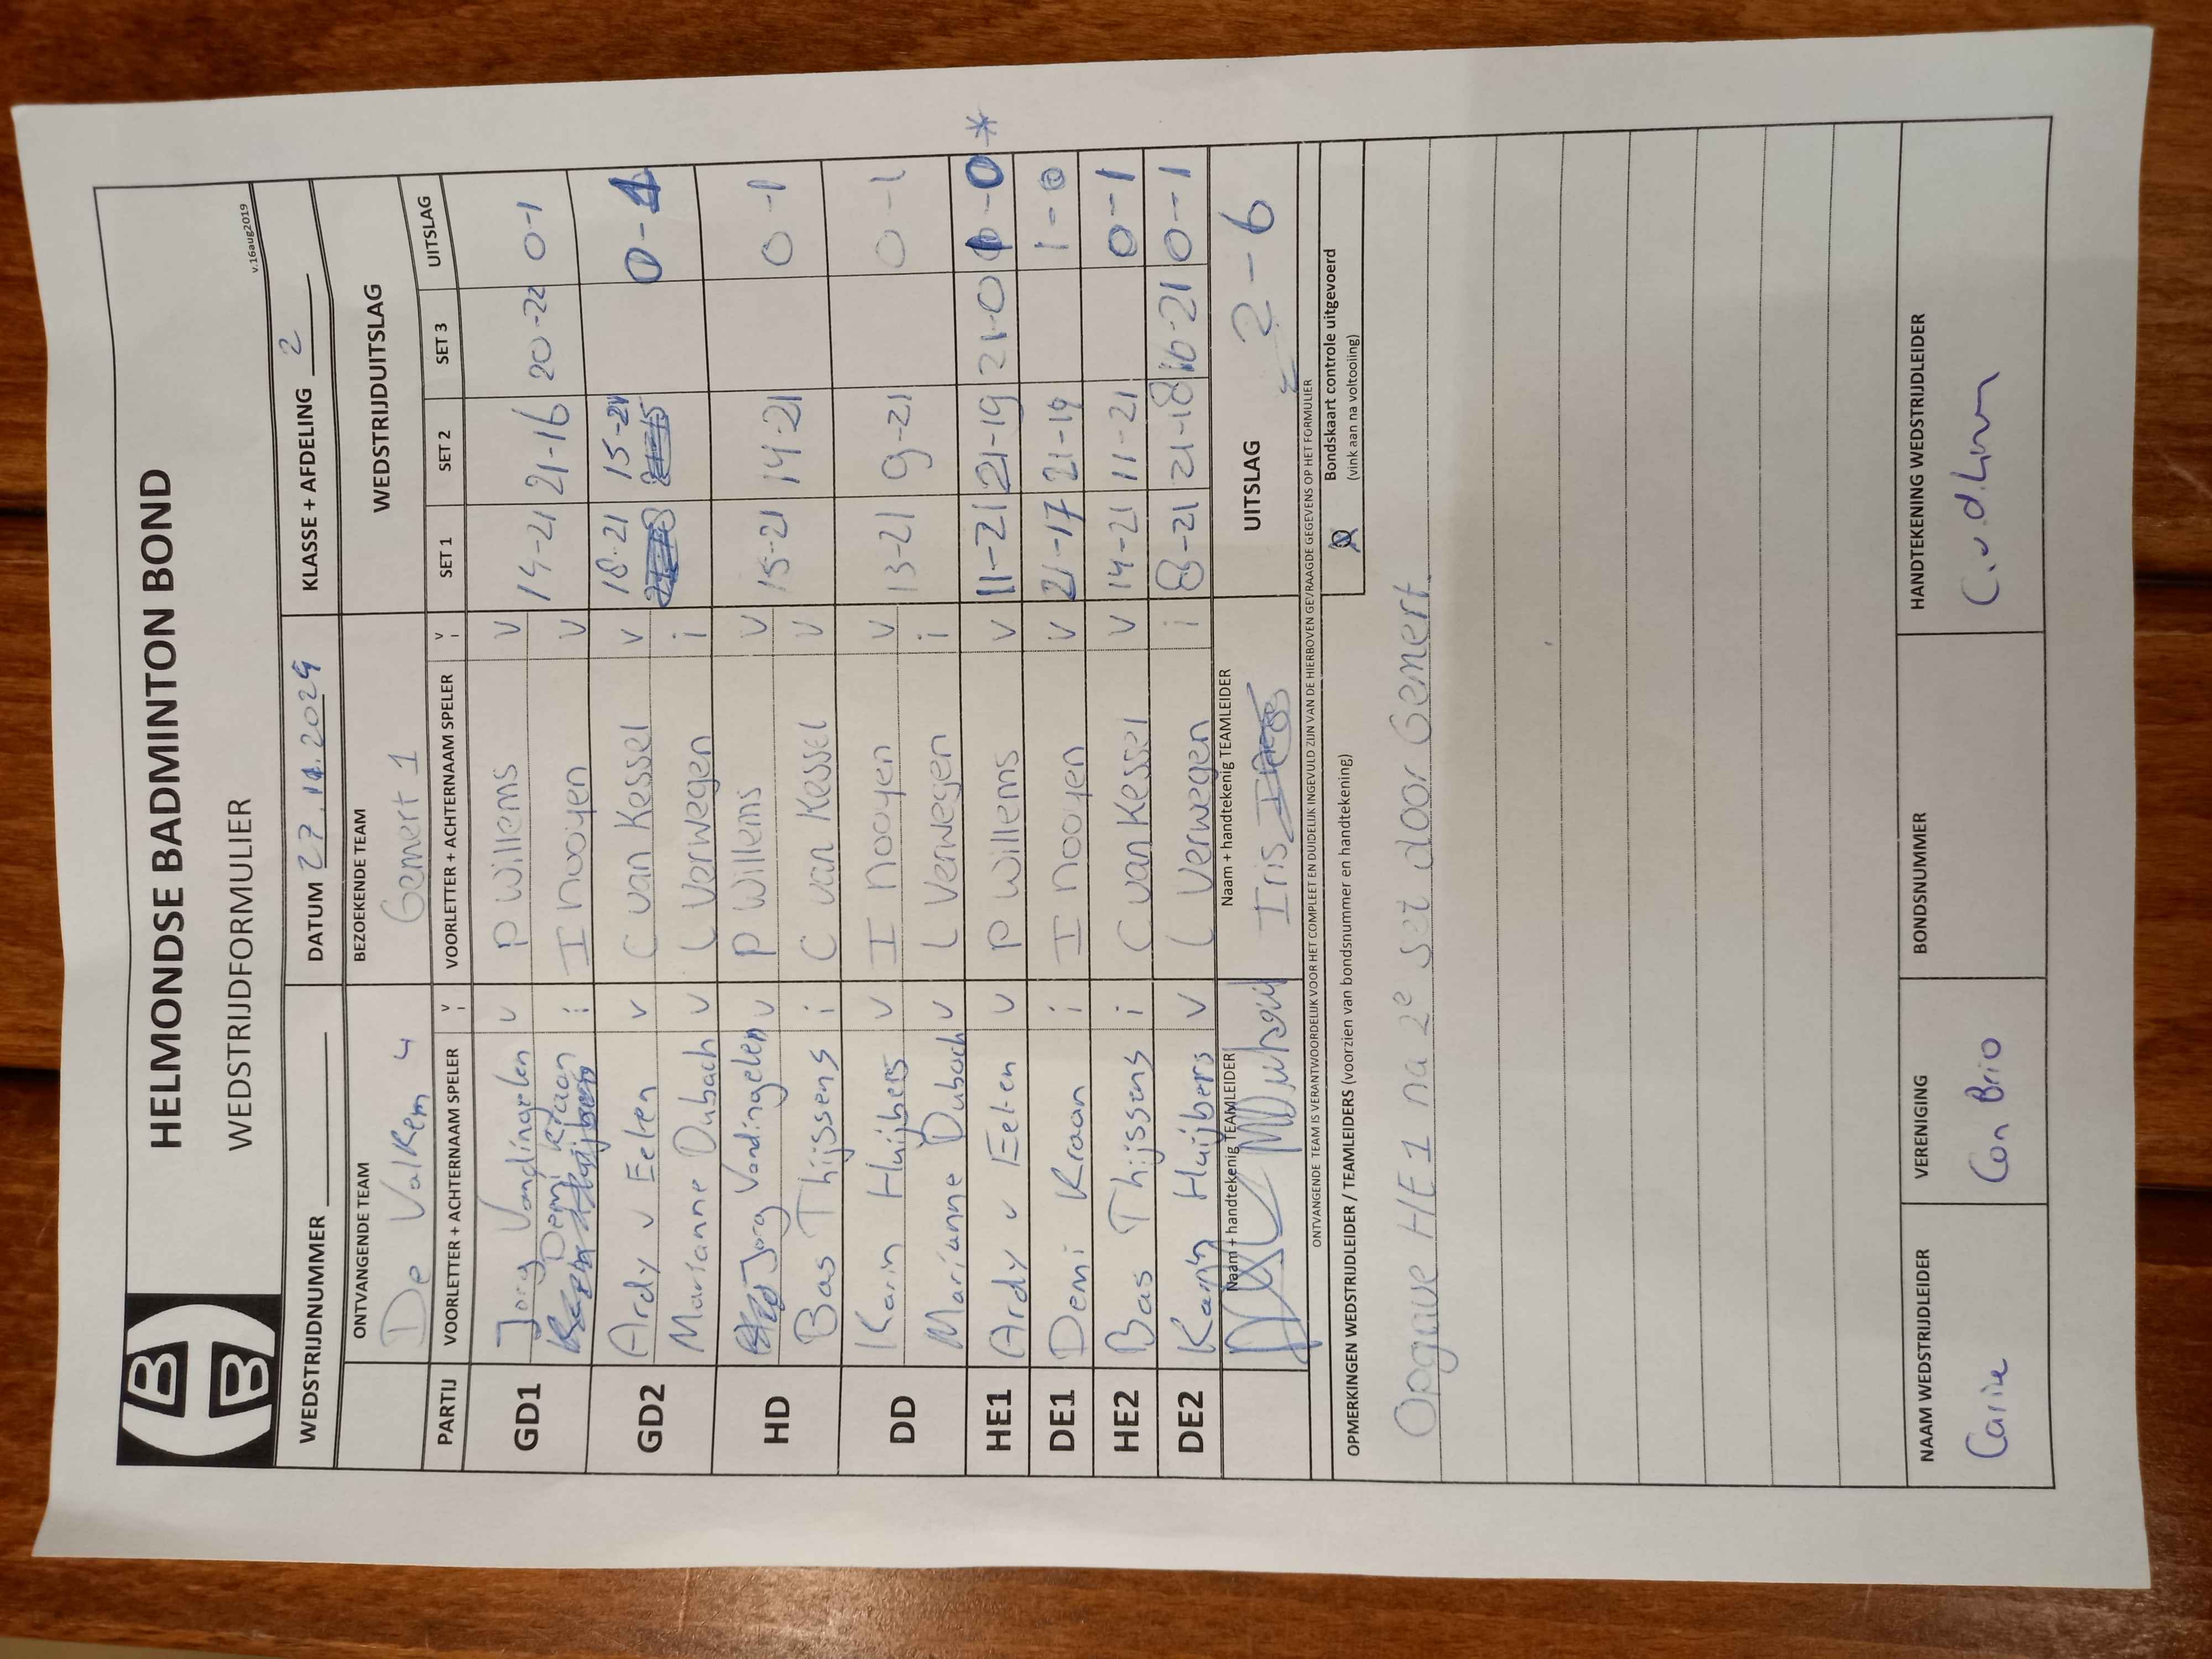 HELMONDSE BADMINTON BOND
WEDSTRIJDFORMULIER
v.16aug2019
WEDSTRIJDNUMMER DATUM 27.11.2024 KLASSE + AFDELING 2
ONTVANGENDE TEAM BEZOEKENDE TEAM WEDSTRIJDUITSLAG
De Valkem 4 Gemert 1
PARTIJ VOORLETTER + ACHTERNAAM SPELER v i VOORLETTER + ACHTERNAAM SPELER v i SET 1 SET 2 SET 3 UITSLAG
GD1 Jorg Vandingelen v P Willems v 14-21 21-16 20-22 0-1
Demi Kraan i I Nooyen v
GD2 Ardy v Eelen v C van Kessel v 18-21 15-21 0-1
Marianne Dubach v L Verwegen i
HD Jorg Vandingelen v P Willems v 15-21 14-21 0-1
Bas Thijssens i C van Kessel v
DD Karin Huijbers v I Nooyen v 13-21 9-21 0-1
Marianne Dubach v L Verwegen i
HE1 Ardy v Eelen v P Willems v 11-21 21-19 21-0 1-0*
DE1 Demi Kraan i I Nooyen v 21-17 21-19 1-0
HE2 Bas Thijssens i C van Kessel v 14-21 11-21 0-1
DE2 Karin Huijbers v L Verwegen i 8-21 21-18 16-21 0-1
Naam + handtekenig TEAMLEIDER Naam + handtekenig TEAMLEIDER UITSLAG 2-6
Iris
ONTVANGENDE TEAM IS VERANTWOORDELIJK VOOR HET COMPLEET EN DUIDELIJK INGEVULD ZIJN VAN DE HIERBOVEN GEVRAAGDE GEGEVENS OP HET FORMULIER
OPMERKINGEN WEDSTRIJDLEIDER / TEAMLEIDERS (voorzien van bondsnummer en handtekening)
Bondskaart controle uitgevoerd
(vink aan na voltooiing)
Opgave HE1 na 2e set door Gemert
NAAM WEDSTRIJDLEIDER VERENIGING BONDSNUMMER HANDTEKENING WEDSTRIJDLEIDER
Carin Con Brio